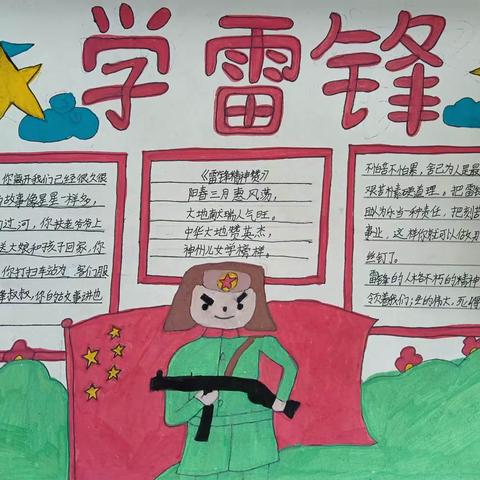 学雷锋
你离开我们已经很久很
故事像星星一样多,
过河,你扶老爷爷上
送大娘和孩子回家,你
你打扫车站为 客们服
锋叔叔,你的故事讲也
《雷锋精神赞》
阳春三月惠风荡,
大地献瑞人气旺。
中华大地赞英杰,
神州儿女学榜样。
不怕苦不怕累,舍己为人是最
艰苦朴素
把雷
助人
当一种责任,把刻苦
事业,这样你就可以做
丝钉。
雷锋的人格不朽的精神
着我们;生的伟大,死得